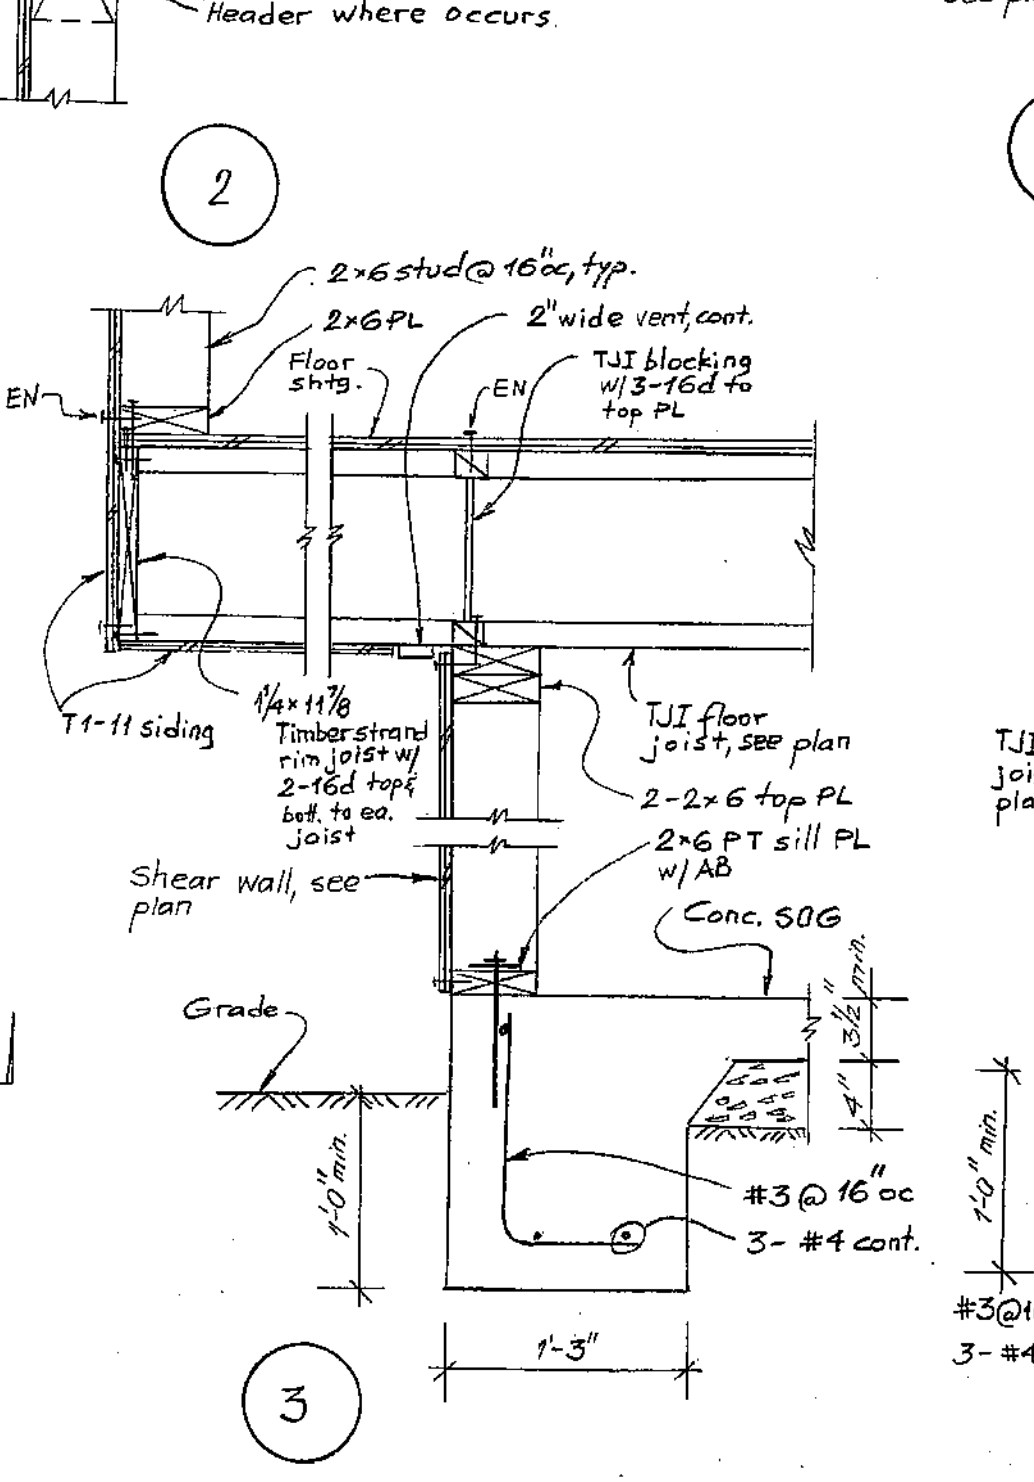 Header where occurs.
2
2×6 stud @ 16" oc, typ.
2×6 PL
2" wide vent, cont.
Floor
shtg.
TJI blocking
w/ 3-16d to
top PL
EN
EN
T1-11 siding
1 1/4 × 11 7/8
Timberstrand
rim joist w/
2-16d top &
bott. to ea.
joist
TJI floor
joist, see plan
2-2×6 top PL
2×6 PT sill PL
w/ AB
Shear wall, see
plan
Conc. SOG
Grade
3 1/2" min.
4"
1'-0" min.
#3 @ 16" oc
3- #4 cont.
1'-3"
3
TJI
joi
pla
1'-0" min.
#3@1
3- #4